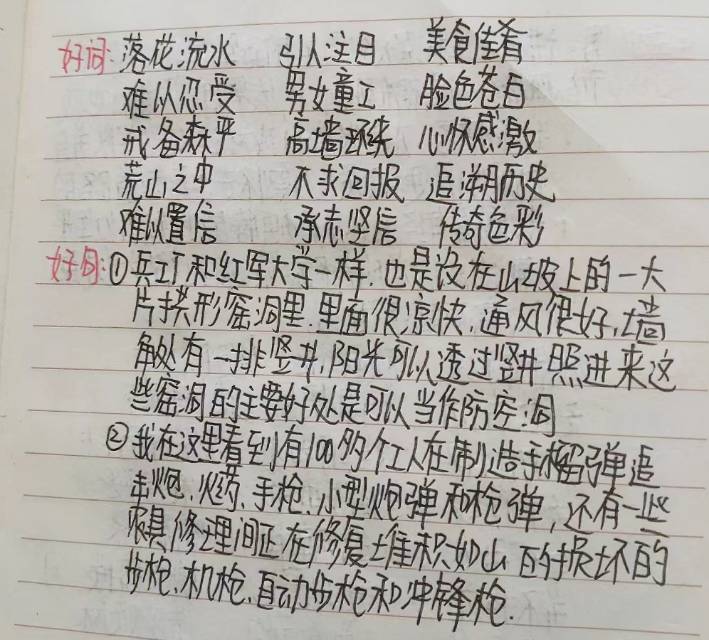 好词: 落花流水 引人注目 美食佳肴
难以忍受 男女童工 脸色苍白
戒备森严 高墙环绕 心怀感激
荒山之中 不求回报 追溯历史
难以置信 承志坚信 传奇色彩
好句: ①兵工厂和红军大学一样.也是设在山坡上的一大
片拱形窑洞里.里面很凉快,通风很好,墙
角处有一排竖井,阳光可以透过竖井照进来这
些窑洞的主要好处是可以当作防空洞
②我在这里看到有100多个工人在制造手榴弹追
击炮、火药、手枪、小型炮弹和枪弹,还有一些
农具修理间正在修复堆积如山的损坏的
步枪、机枪、自动步枪和冲锋枪.